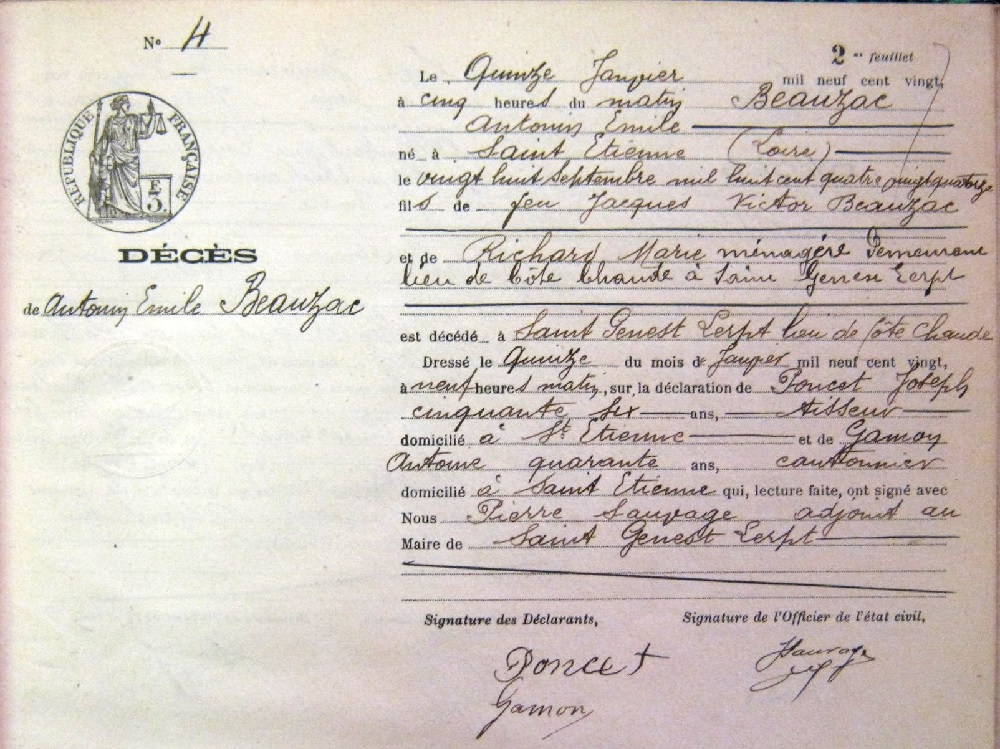 N° 4
2me feuillet
RÉPUBLIQUE FRANÇAISE
DÉCÈS
de Antonin Emile Beauzac
Le Quinze Janvier mil neuf cent vingt,
à cinq heures du matin Beauzac
Antonin Emile
né à Saint Etienne (Loire)
le vingt huit septembre mil huit cent quatre vingt quatorze
fils de feu Jacques Victor Beauzac
et de Richard Marie ménagère demeurant
lieu de Côte Chaude à Saint Genest Lerpt
est décédé à Saint Genest Lerpt lieu de Côte Chaude
Dressé le Quinze du mois de Janvier mil neuf cent vingt,
à neuf heures matin, sur la déclaration de Poncet Joseph
cinquante six ans, tisseur
domicilié à St Etienne et de Gamon
Antoine quarante ans, cantonnier
domicilié à Saint Etienne qui, lecture faite, ont signé avec
Nous Pierre Sauvage adjoint au
Maire de Saint Genest Lerpt
Signature des Déclarants,
Signature de l'Officier de l'état civil,
Poncet
Sauvage
Gamon